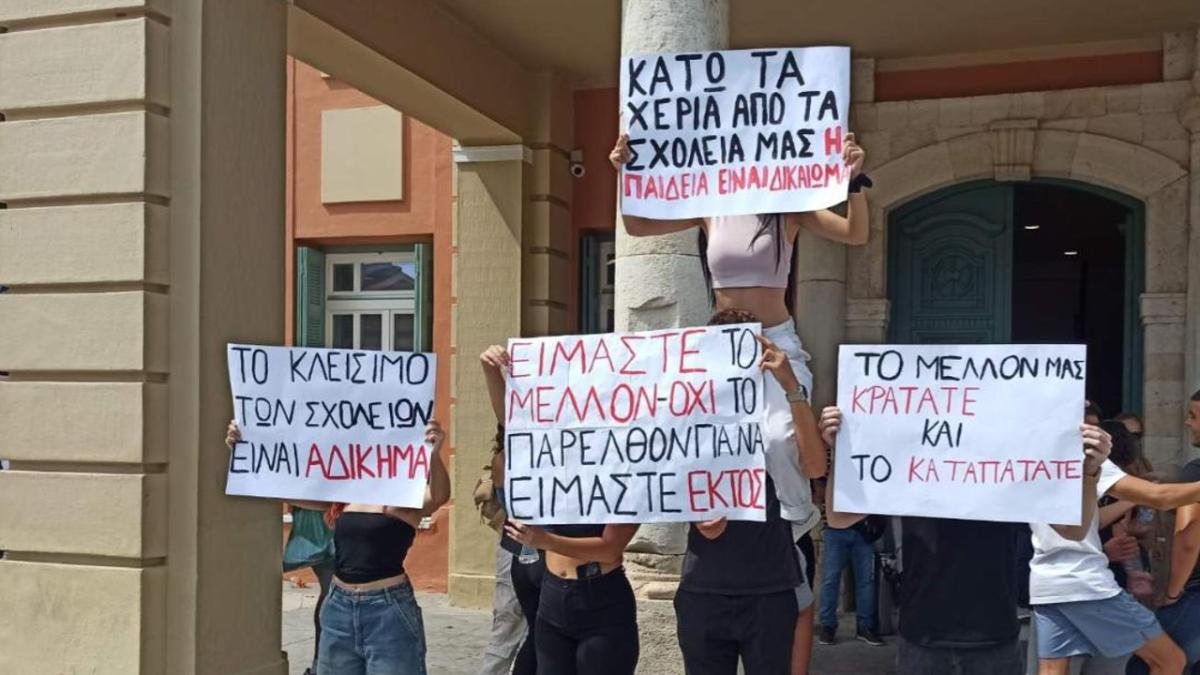 ΚΑΤΩ ΤΑ
ΧΕΡΙΑ ΑΠΟ ΤΑ
ΣΧΟΛΕΙΑ ΜΑΣ Η
ΠΑΙΔΕΙΑ ΕΙΝΑΙ ΔΙΚΑΙΩΜΑ
ΤΟ ΚΛΕΙΣΙΜΟ
ΤΩΝ ΣΧΟΛΕΙΩΝ
ΕΙΝΑΙ ΑΔΙΚΗΜΑ
ΕΙΜΑΣΤΕ ΤΟ
ΜΕΛΛΟΝ-ΟΧΙ ΤΟ
ΠΑΡΕΛΘΟΝ ΓΙΑ ΝΑ
ΕΙΜΑΣΤΕ ΕΚΤΟΣ
ΤΟ ΜΕΛΛΟΝ ΜΑΣ
ΚΡΑΤΑΤΕ
ΚΑΙ
ΤΟ ΚΑΤΑΠΑΤΑΤΕ